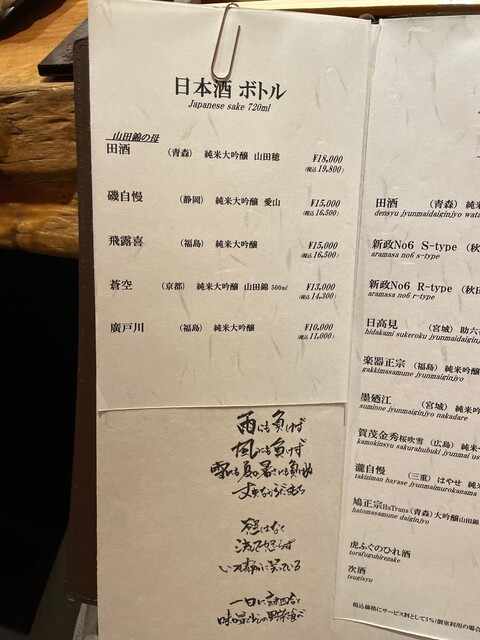 日本酒 ボトル
Japanese sake 720ml
山田錦の母
田酒 (青森) 純米大吟醸 山田穂 ¥18,000
(税込 19,800)
磯自慢 (静岡) 純米大吟醸 愛山 ¥15,000
(税込 16,500)
飛露喜 (福島) 純米大吟醸 ¥15,000
(税込 16,500)
蒼空 (京都) 純米大吟醸 山田錦 500ml ¥13,000
(税込 14,300)
廣戸川 (福島) 純米大吟醸 ¥10,000
(税込 11,000)
雨にも負けず
風にも負けず
雪にも夏の暑さにも負けぬ
丈夫なからだをもち
慾はなく
決して怒らず
いつも静かに笑っている
一日に玄米四合と
味噌と少しの野菜を食べ
田酒 (青森) 純
densyu jyunmaidaiginjyo wata
新政No6 S-type (秋
aramasa no6 s-type
新政No6 R-type (秋田
aramasa no6 r-type
日高見 (宮城) 助六
hidakami sukeroku jyunmaiginj
楽器正宗 (福島) 純米吟醸
gakkimasamune jyunmaiginjyo
墨廼江 (宮城) 純米吟
suminoe jyunmaiginjyo nakadare
賀茂金秀桜吹雪 (広島) 純米
kamokinsyu sakurahubuki jyunmai us
瀧自慢 (三重) はやせ 純米
takiziman hayase jyunmaimurokanama
鳩正宗HaTrans(青森)大吟醸山田錦
hatomasamune daiginjyo
虎ふぐのひれ酒
torafuguhirezake
次酒
tsugisyu
税込価格にサービス料として5%(個室利用の場合